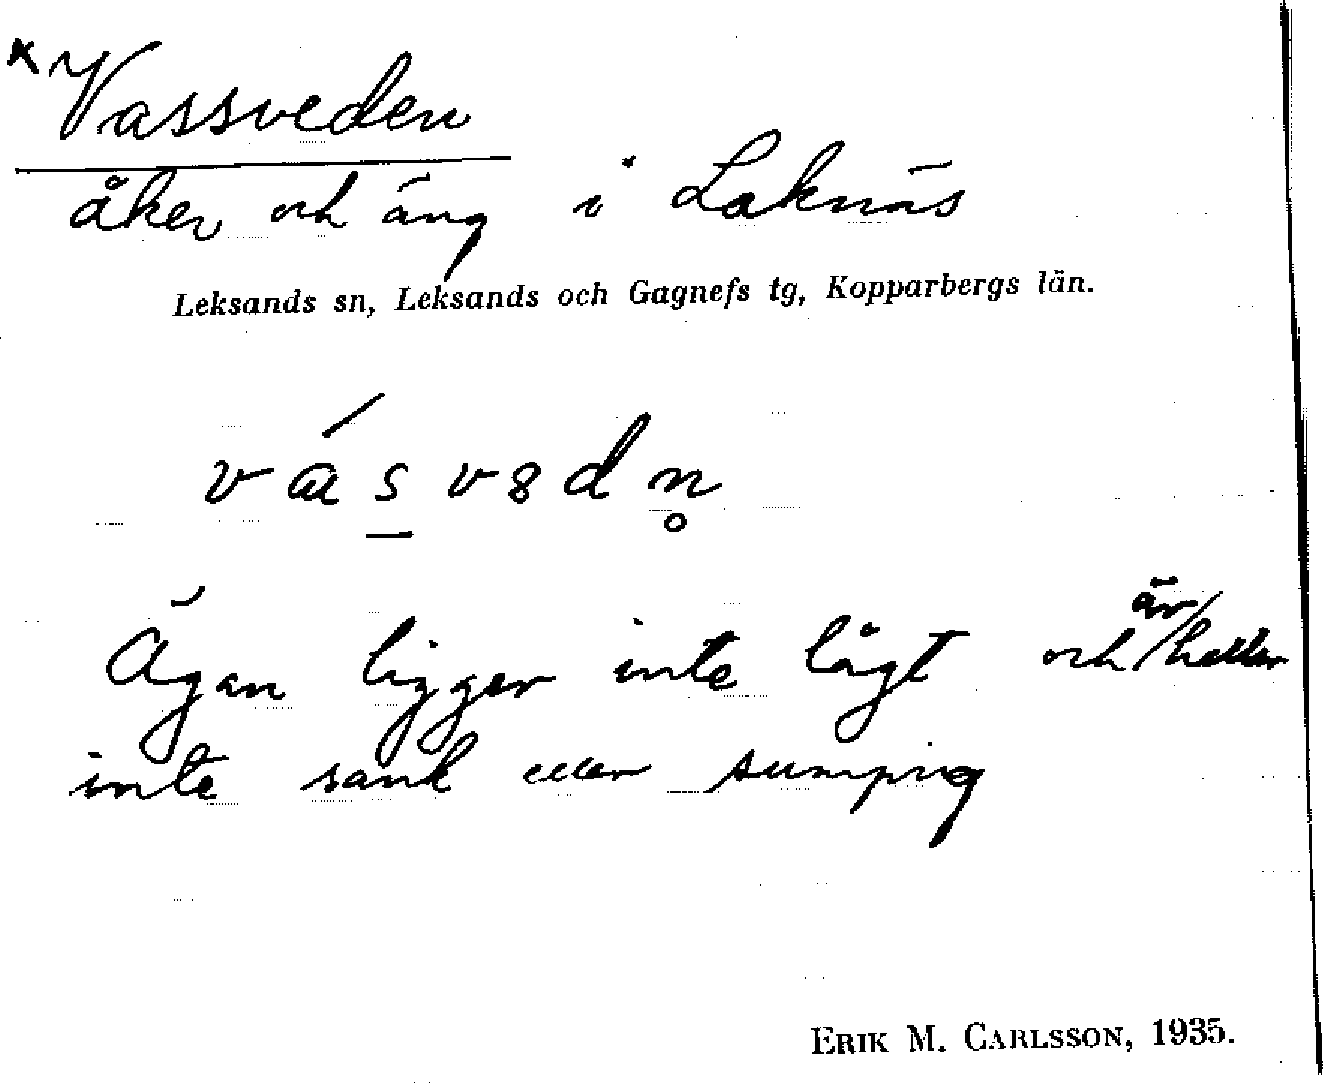 × Vassveden
åker och äng i Laknäs
Leksands sn, Leksands och Gagnefs tg, Kopparbergs län.
vása vədn̥
Ägan ligger inte lågt och är heller
inte sank eller sumpig
ERIK M. CARLSSON, 1935.